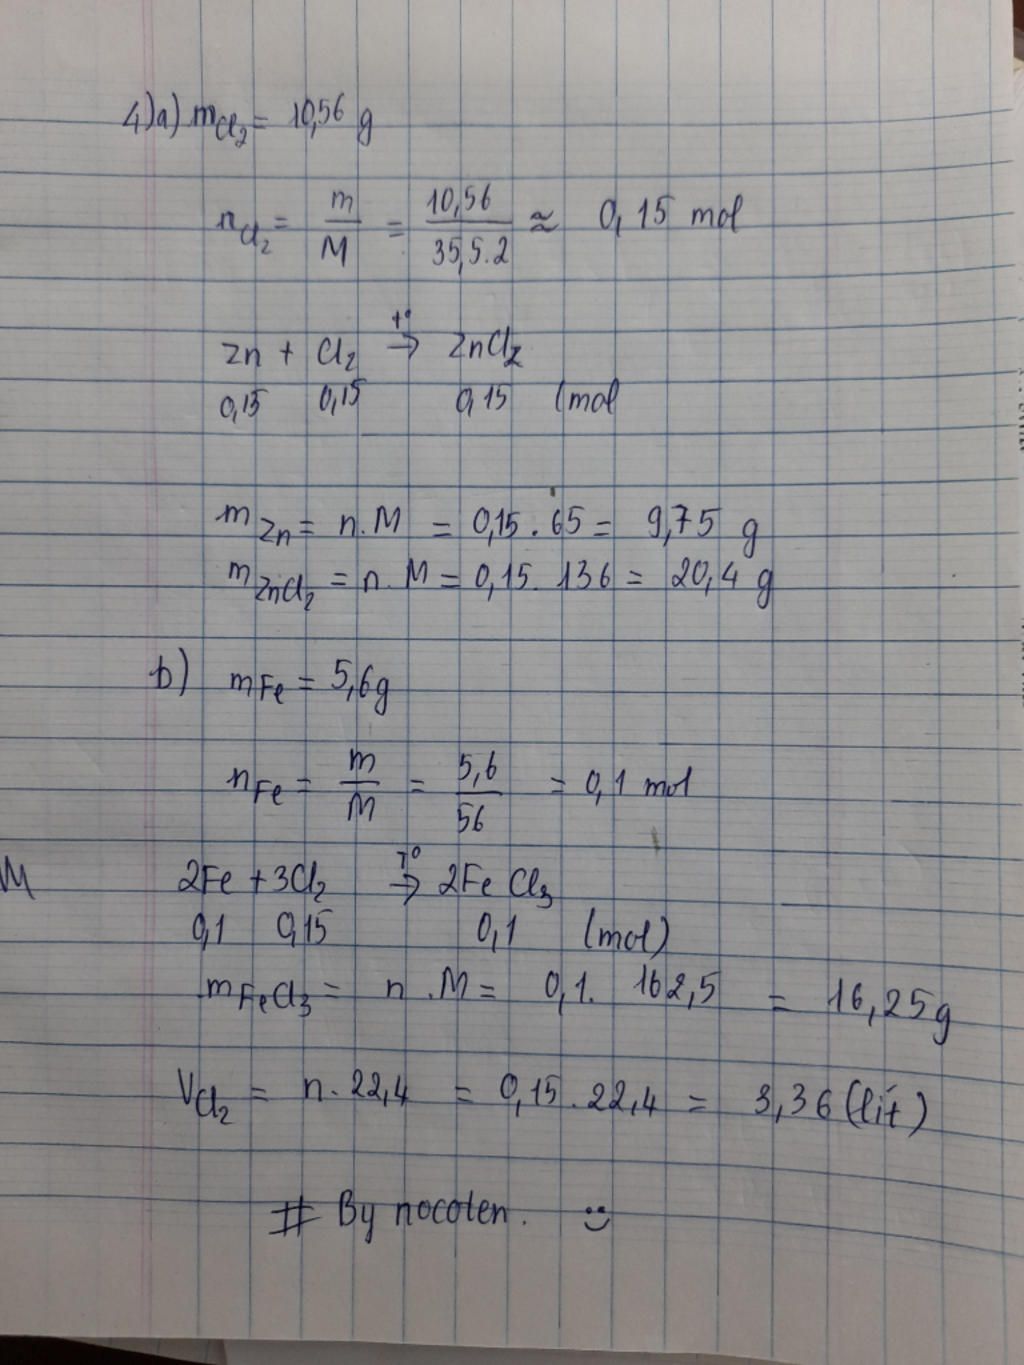 4)a) mCl2 = 10,56 g
nCl2 = m/M = 10,56/35,5.2 ≈ 0,15 mol
Zn + Cl2 t°→ ZnCl2
0,15 0,15 0,15 (mol
mZn = n.M = 0,15.65 = 9,75 g
mZnCl2 = n.M = 0,15.136 = 20,4 g
b) mFe = 5,6g
nFe = m/M = 5,6/56 = 0,1 mol
M 2Fe + 3Cl2 T°→ 2FeCl3
0,1 0,15 0,1 (mol)
mFeCl3 = n.M = 0,1. 162,5 = 16,25g
VCl2 = n.22,4 = 0,15.22,4 = 3,36 (lít)
# By nocoten. :)